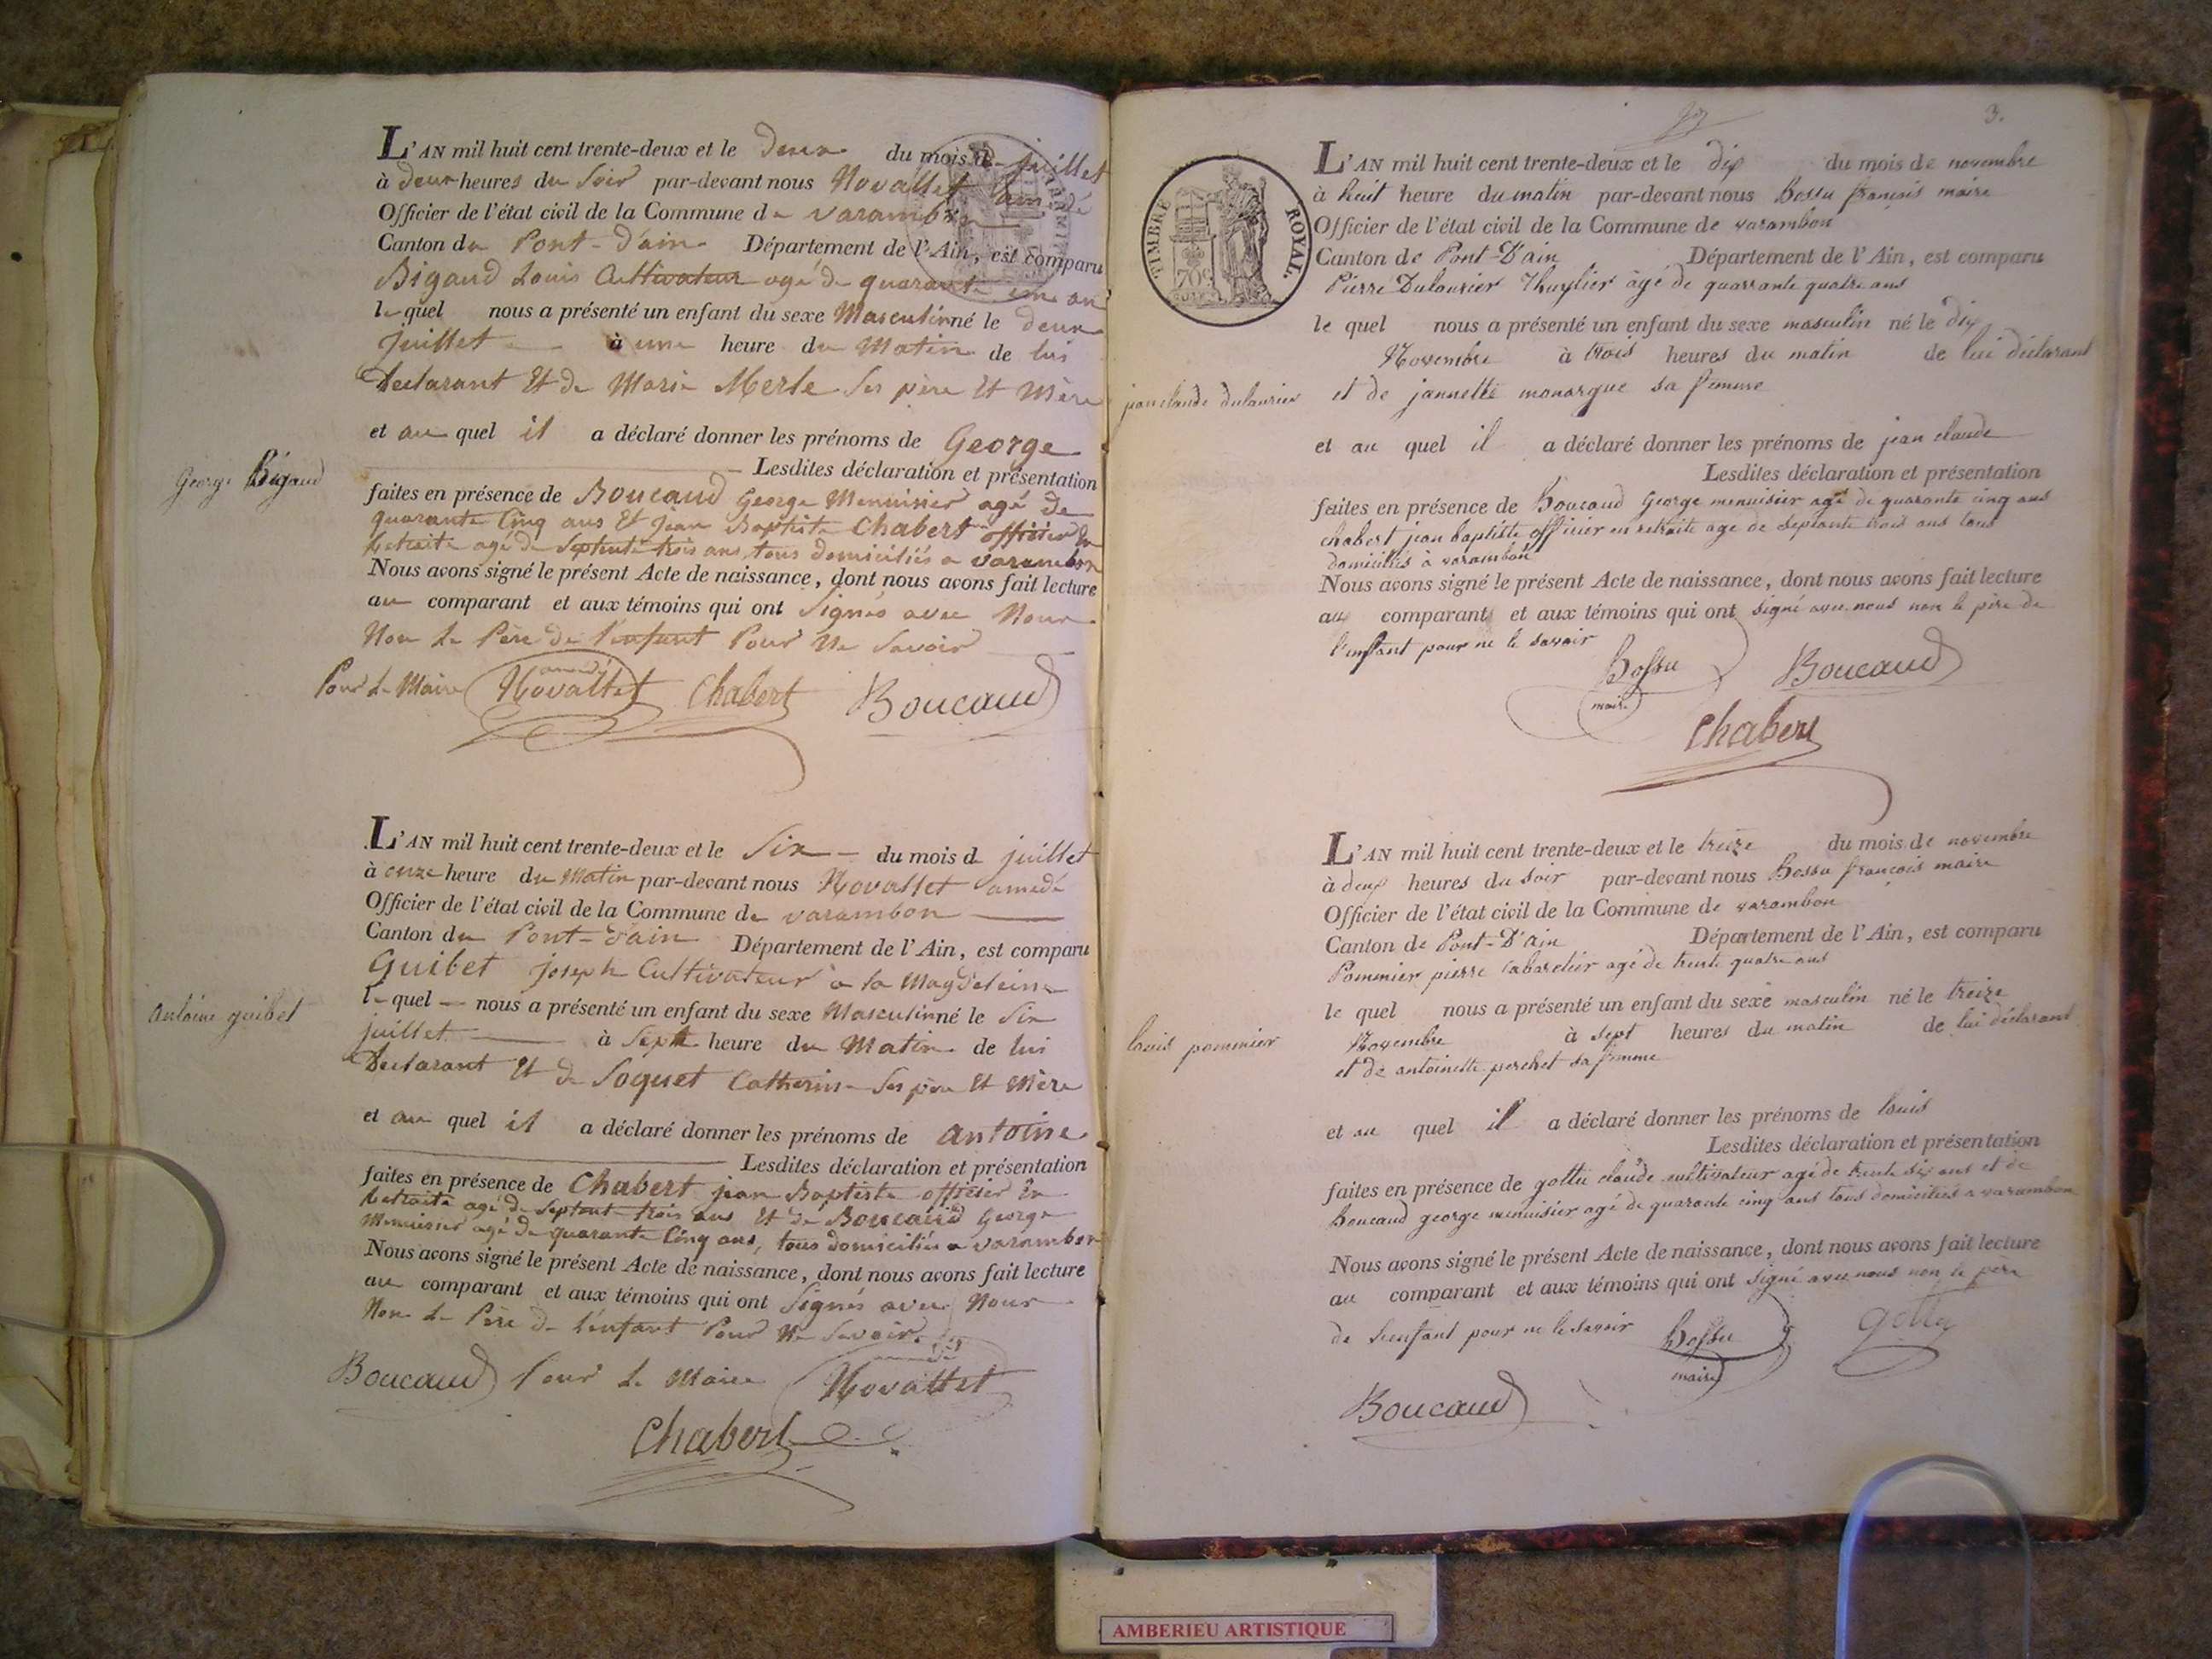 L'AN mil huit cent trente-deux et le deux du mois de juillet
à deux heures du Soir par-devant nous Novallet amedé
Officier de l'état civil de la Commune de varambon
Canton du Pont-d'ain Département de l'Ain, est comparu
Bigaud Louis Cultivateur agé de quarante un an
le quel nous a présenté un enfant du sexe Masculin né le deux
Juillet à une heure du Matin de lui
Declarant Et de Marie Merle Ses père Et Mère
et au quel il a déclaré donner les prénoms de George
George Bigaud
Lesdites déclaration et présentation
faites en présence de Boucaud George Menuisier agé de
quarante Cinq ans Et Jean Baptiste Chabert officier en
Retraite agé de Septente trois ans, tous domiciliés a varambon
Nous avons signé le présent Acte de naissance, dont nous avons fait lecture
au comparant et aux témoins qui ont Signés avec Nous
Non Le Père de l'enfant Pour Ne Savoir
Pour Le Maire Novallet amedé Chabert Boucaud
L'AN mil huit cent trente-deux et le Six du mois d juillet
à onze heure du Matin par-devant nous Novallet amedé
Officier de l'état civil de la Commune de varambon
Canton du Pont-d'ain Département de l'Ain, est comparu
Guibet joseph Cultivateur a la Magdeleine
le quel nous a présenté un enfant du sexe Masculin né le Six
juillet à Sept heure du Matin de lui
Declarant Et de Soquet Catherine Ses père Et Mère
antoine guibet
et au quel il a déclaré donner les prénoms de antoine
Lesdites déclaration et présentation
faites en présence de Chabert jean Baptiste officier en
Retraite agé de Septente trois ans Et de Boucaud George
Menuisier agé de quarante Cinq ans, tous domiciliés a varambon
Nous avons signé le présent Acte de naissance, dont nous avons fait lecture
au comparant et aux témoins qui ont Signés avec Nous
Non Le Père de L'enfant Pour Ne Savoir
Boucaud Pour Le Maire Novallet amedé
Chabert
3.
TIMBRE ROYAL.
70c
L'AN mil huit cent trente-deux et le dix du mois de novembre
à huit heure du matin par-devant nous Bossu françois maire
Officier de l'état civil de la Commune de varambon
Canton de Pont-D'ain Département de l'Ain, est comparu
Pierre Dulaurier Thuylier âgé de quarrante quatre ans
le quel nous a présenté un enfant du sexe masculin né le dix
Novembre à trois heures du matin de lui déclarant
jean claude dulaurier et de jannette monarque sa femme
et au quel il a déclaré donner les prénoms de jean claude
Lesdites déclaration et présentation
faites en présence de Boucaud George menuisier agé de quarante cinq ans
chabert jean baptiste officier en retraite age de septante trois ans tous
domiciliés à varambon
Nous avons signé le présent Acte de naissance, dont nous avons fait lecture
au comparant et aux témoins qui ont signé avec nous non le père de
l'enfant pour ne le savoir
Bossu maire Boucaud
Chabert
L'AN mil huit cent trente-deux et le treize du mois de novembre
à deux heures du soir par-devant nous Bossu françois maire
Officier de l'état civil de la Commune de varambon
Canton de Pont-D'ain Département de l'Ain, est comparu
Pommier pierre cabaretier agé de trente quatre ans
le quel nous a présenté un enfant du sexe masculin né le treize
louis pommier
Novembre à sept heures du matin de lui déclarant
et de antoinette perchet sa femme
et au quel il a déclaré donner les prénoms de louis
Lesdites déclaration et présentation
faites en présence de gottu claude cultivateur agé de trente six ans et de
Boucaud george menuisier agé de quarante cinq ans tous domiciliés a varambon
Nous avons signé le présent Acte de naissance, dont nous avons fait lecture
au comparant et aux témoins qui ont signé avec nous non le père
de l'enfant pour ne le savoir Bossu maire gottu
Boucaud
AMBERIEU ARTISTIQUE